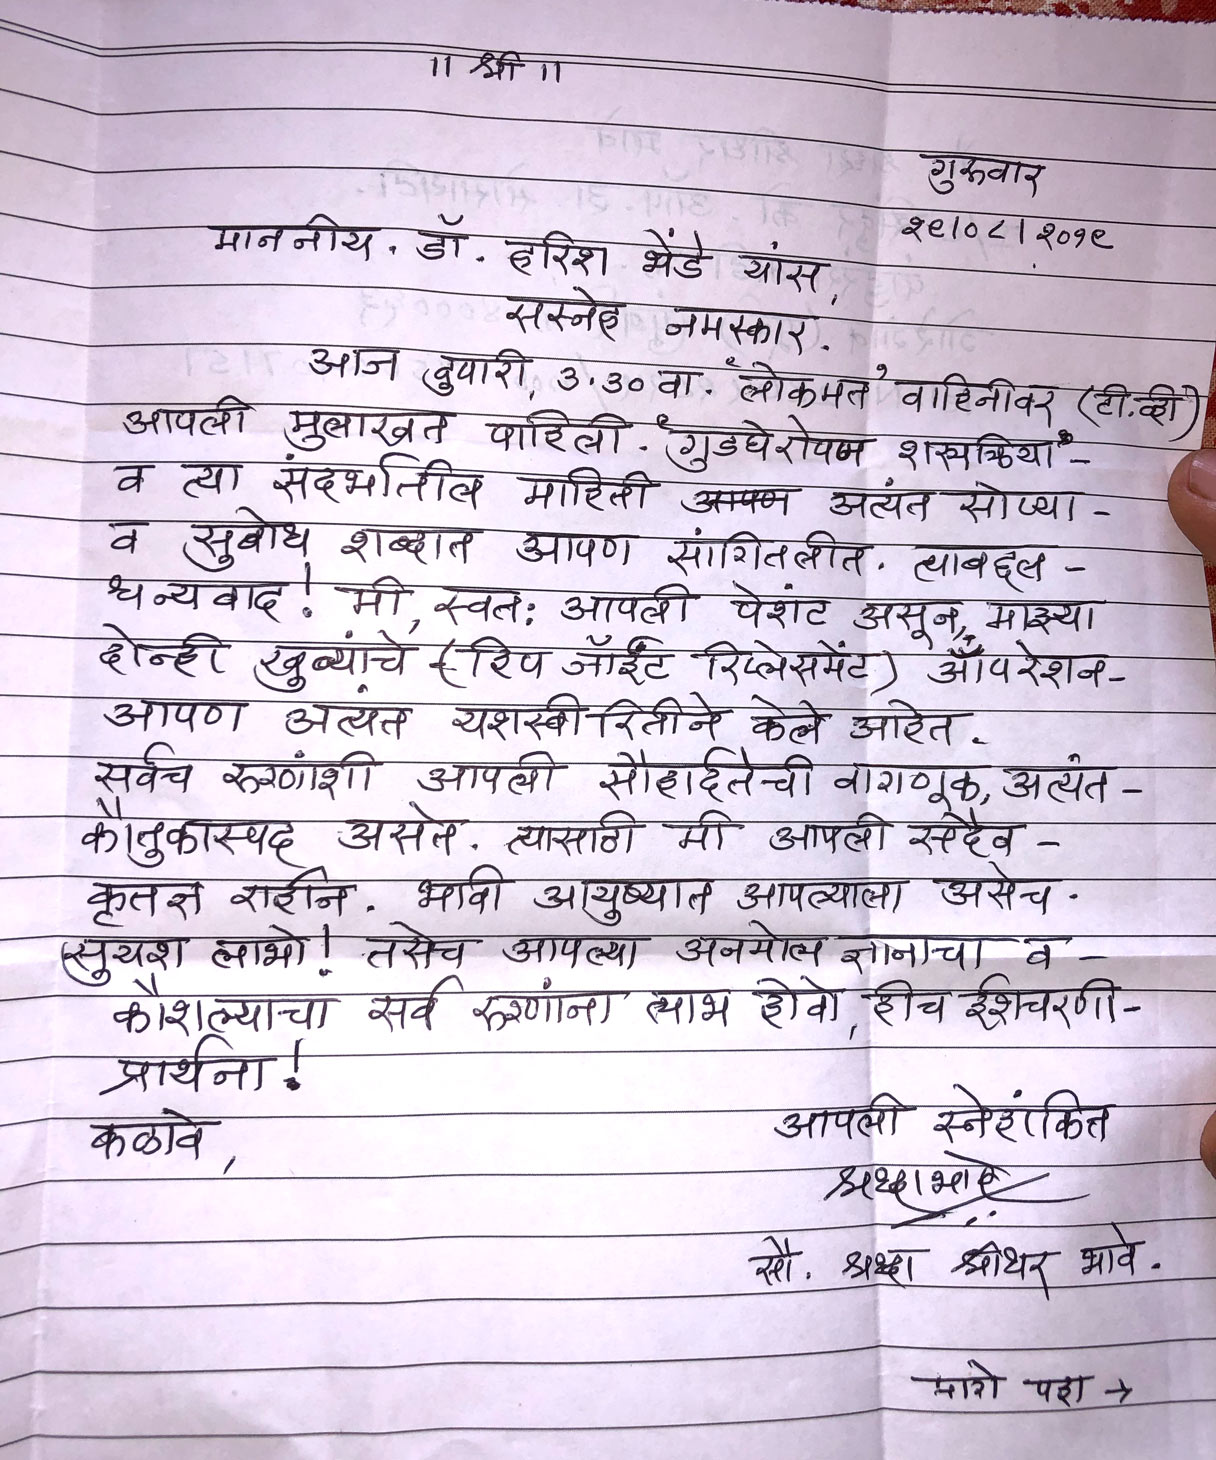 ॥ श्री ॥
गुरूवार
२९/०८/२०१९
माननीय. डॉ. हरिश भेंडे यांस,
सस्नेह नमस्कार.
आज दुपारी, ३.३० वा. "लोकमत" वाहिनीवर (टी.व्ही)
आपली मुलाखत पाहिली. "गुडघेरोपण शस्त्रक्रिया" -
व त्या संदर्भातील माहिती आपण अत्यंत सोप्या -
व सुबोध शब्दात आपण सांगितलीत. त्याबद्दल -
धन्यवाद! मी, स्वतः आपली पेशंट असून, माझ्या
दोन्ही खुब्यांचे (हिप जॉईंट रिप्लेसमेंट) ऑपरेशन -
आपण अत्यंत यशस्वीरितीने केले आहेत.
सर्वच रुग्णांशी आपली सौहार्दतेची वागणूक, अत्यंत -
कौतुकास्पद असते. त्यासाठी मी आपली सदैव -
कृतज्ञ राहीन. भावी आयुष्यात आपल्याला असेच.
सुयश लाभो! तसेच आपल्या अनमोल ज्ञानाचा व -
कौशल्याचा सर्व रुग्णांना लाभ होवो, हीच ईशचरणी -
प्रार्थना!
कळावे,
आपली स्नेहांकित
श्रध्दा भावे
सौ. श्रध्दा श्रीधर भावे.
मागे पहा →